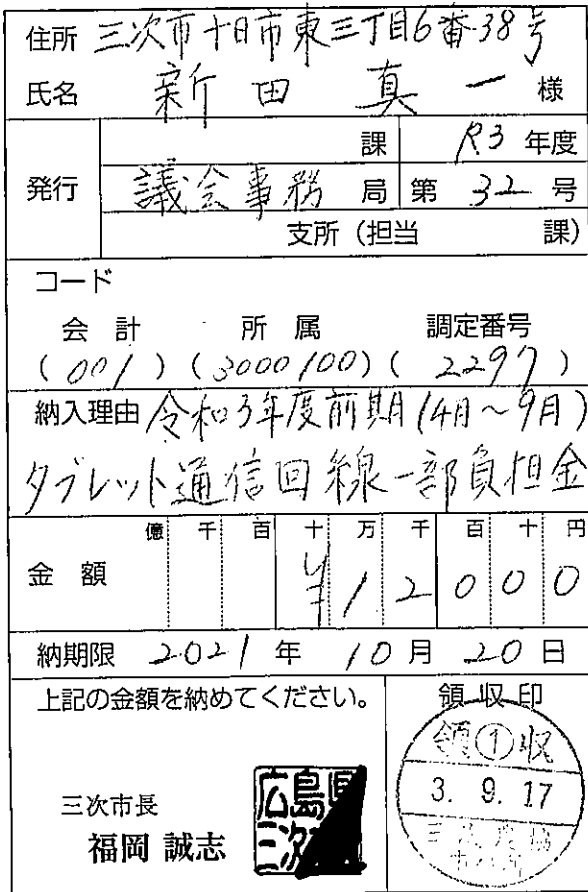 住所 三次市十日市東三丁目6番38号
氏名 新田 真一 様
発行
課 R3 年度
議会事務 局 第 32 号
支所 (担当 課)
コード
会計 所属 調定番号
(001) (3000100) (2297)
納入理由 令和3年度前期(4月~9月)
タブレット通信回線一部負担金
億 千 百 十 万 千 百 十 円
金額 ¥12000
納期限 2021年 10月 20日
上記の金額を納めてください。
領収印
領①収
3. 9. 17
三次市長
福岡 誠志
広島県
三次